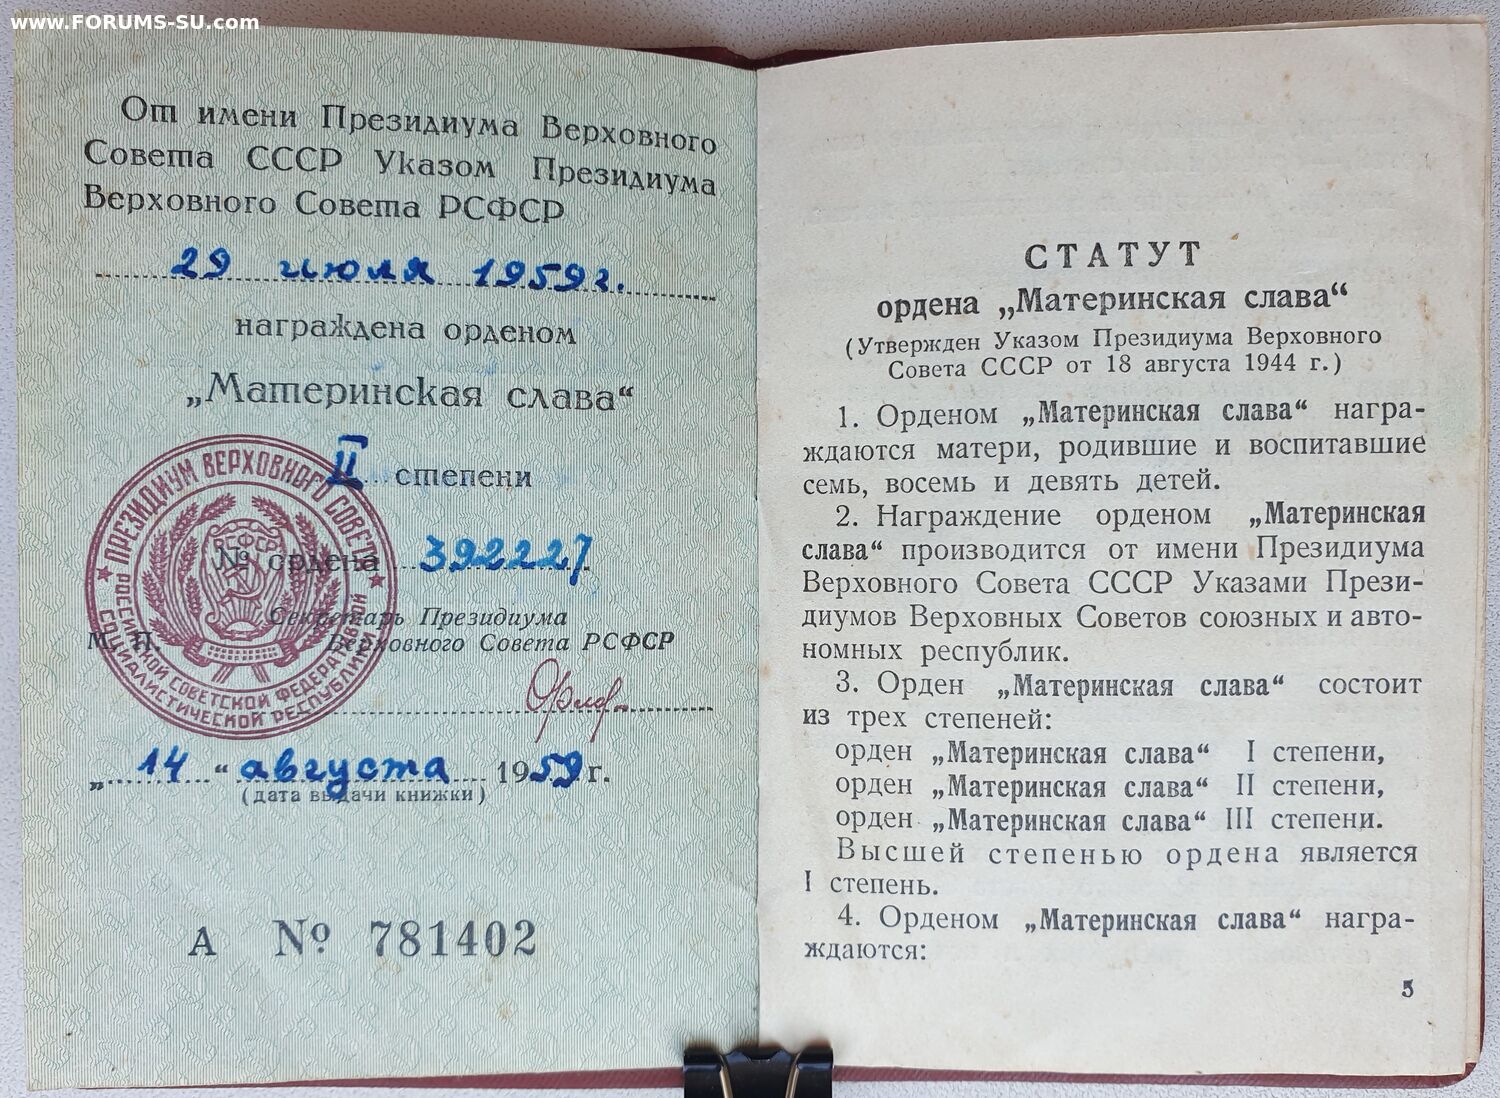 www.FORUMS-SU.com
От имени Президиума Верховного
Совета СССР Указом Президиума
Верховного Совета РСФСР
29 июля 1959г.
награждена орденом
„Материнская слава“
II степени
№ ордена 392227
Секретарь Президиума
М. П. Верховного Совета РСФСР
„14“ августа 1959 г.
(дата выдачи книжки)
А № 781402
ПРЕЗИДИУМ ВЕРХОВНОГО СОВЕТА
РОССИЙСКОЙ СОВЕТСКОЙ ФЕДЕРАТИВНОЙ
СОЦИАЛИСТИЧЕСКОЙ РЕСПУБЛИКИ
РСФСР
СТАТУТ
ордена „Материнская слава“
(Утвержден Указом Президиума Верховного
Совета СССР от 18 августа 1944 г.)
1. Орденом „Материнская слава“ награ-
ждаются матери, родившие и воспитавшие
семь, восемь и девять детей.
2. Награждение орденом „Материнская
слава“ производится от имени Президиума
Верховного Совета СССР Указами Прези-
диумов Верховных Советов союзных и авто-
номных республик.
3. Орден „Материнская слава“ состоит
из трех степеней:
орден „Материнская слава“ I степени,
орден „Материнская слава“ II степени,
орден „Материнская слава“ III степени.
Высшей степенью ордена является
I степень.
4. Орденом „Материнская слава“ награ-
ждаются:
5